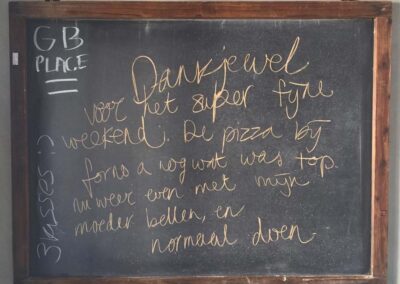 GB
PLACE
Dankjewel
voor het super fijne
weekendj. De pizza bij
forno a wat was top.
nu weer even met mijn
moeder bellen, en
normaal doen.